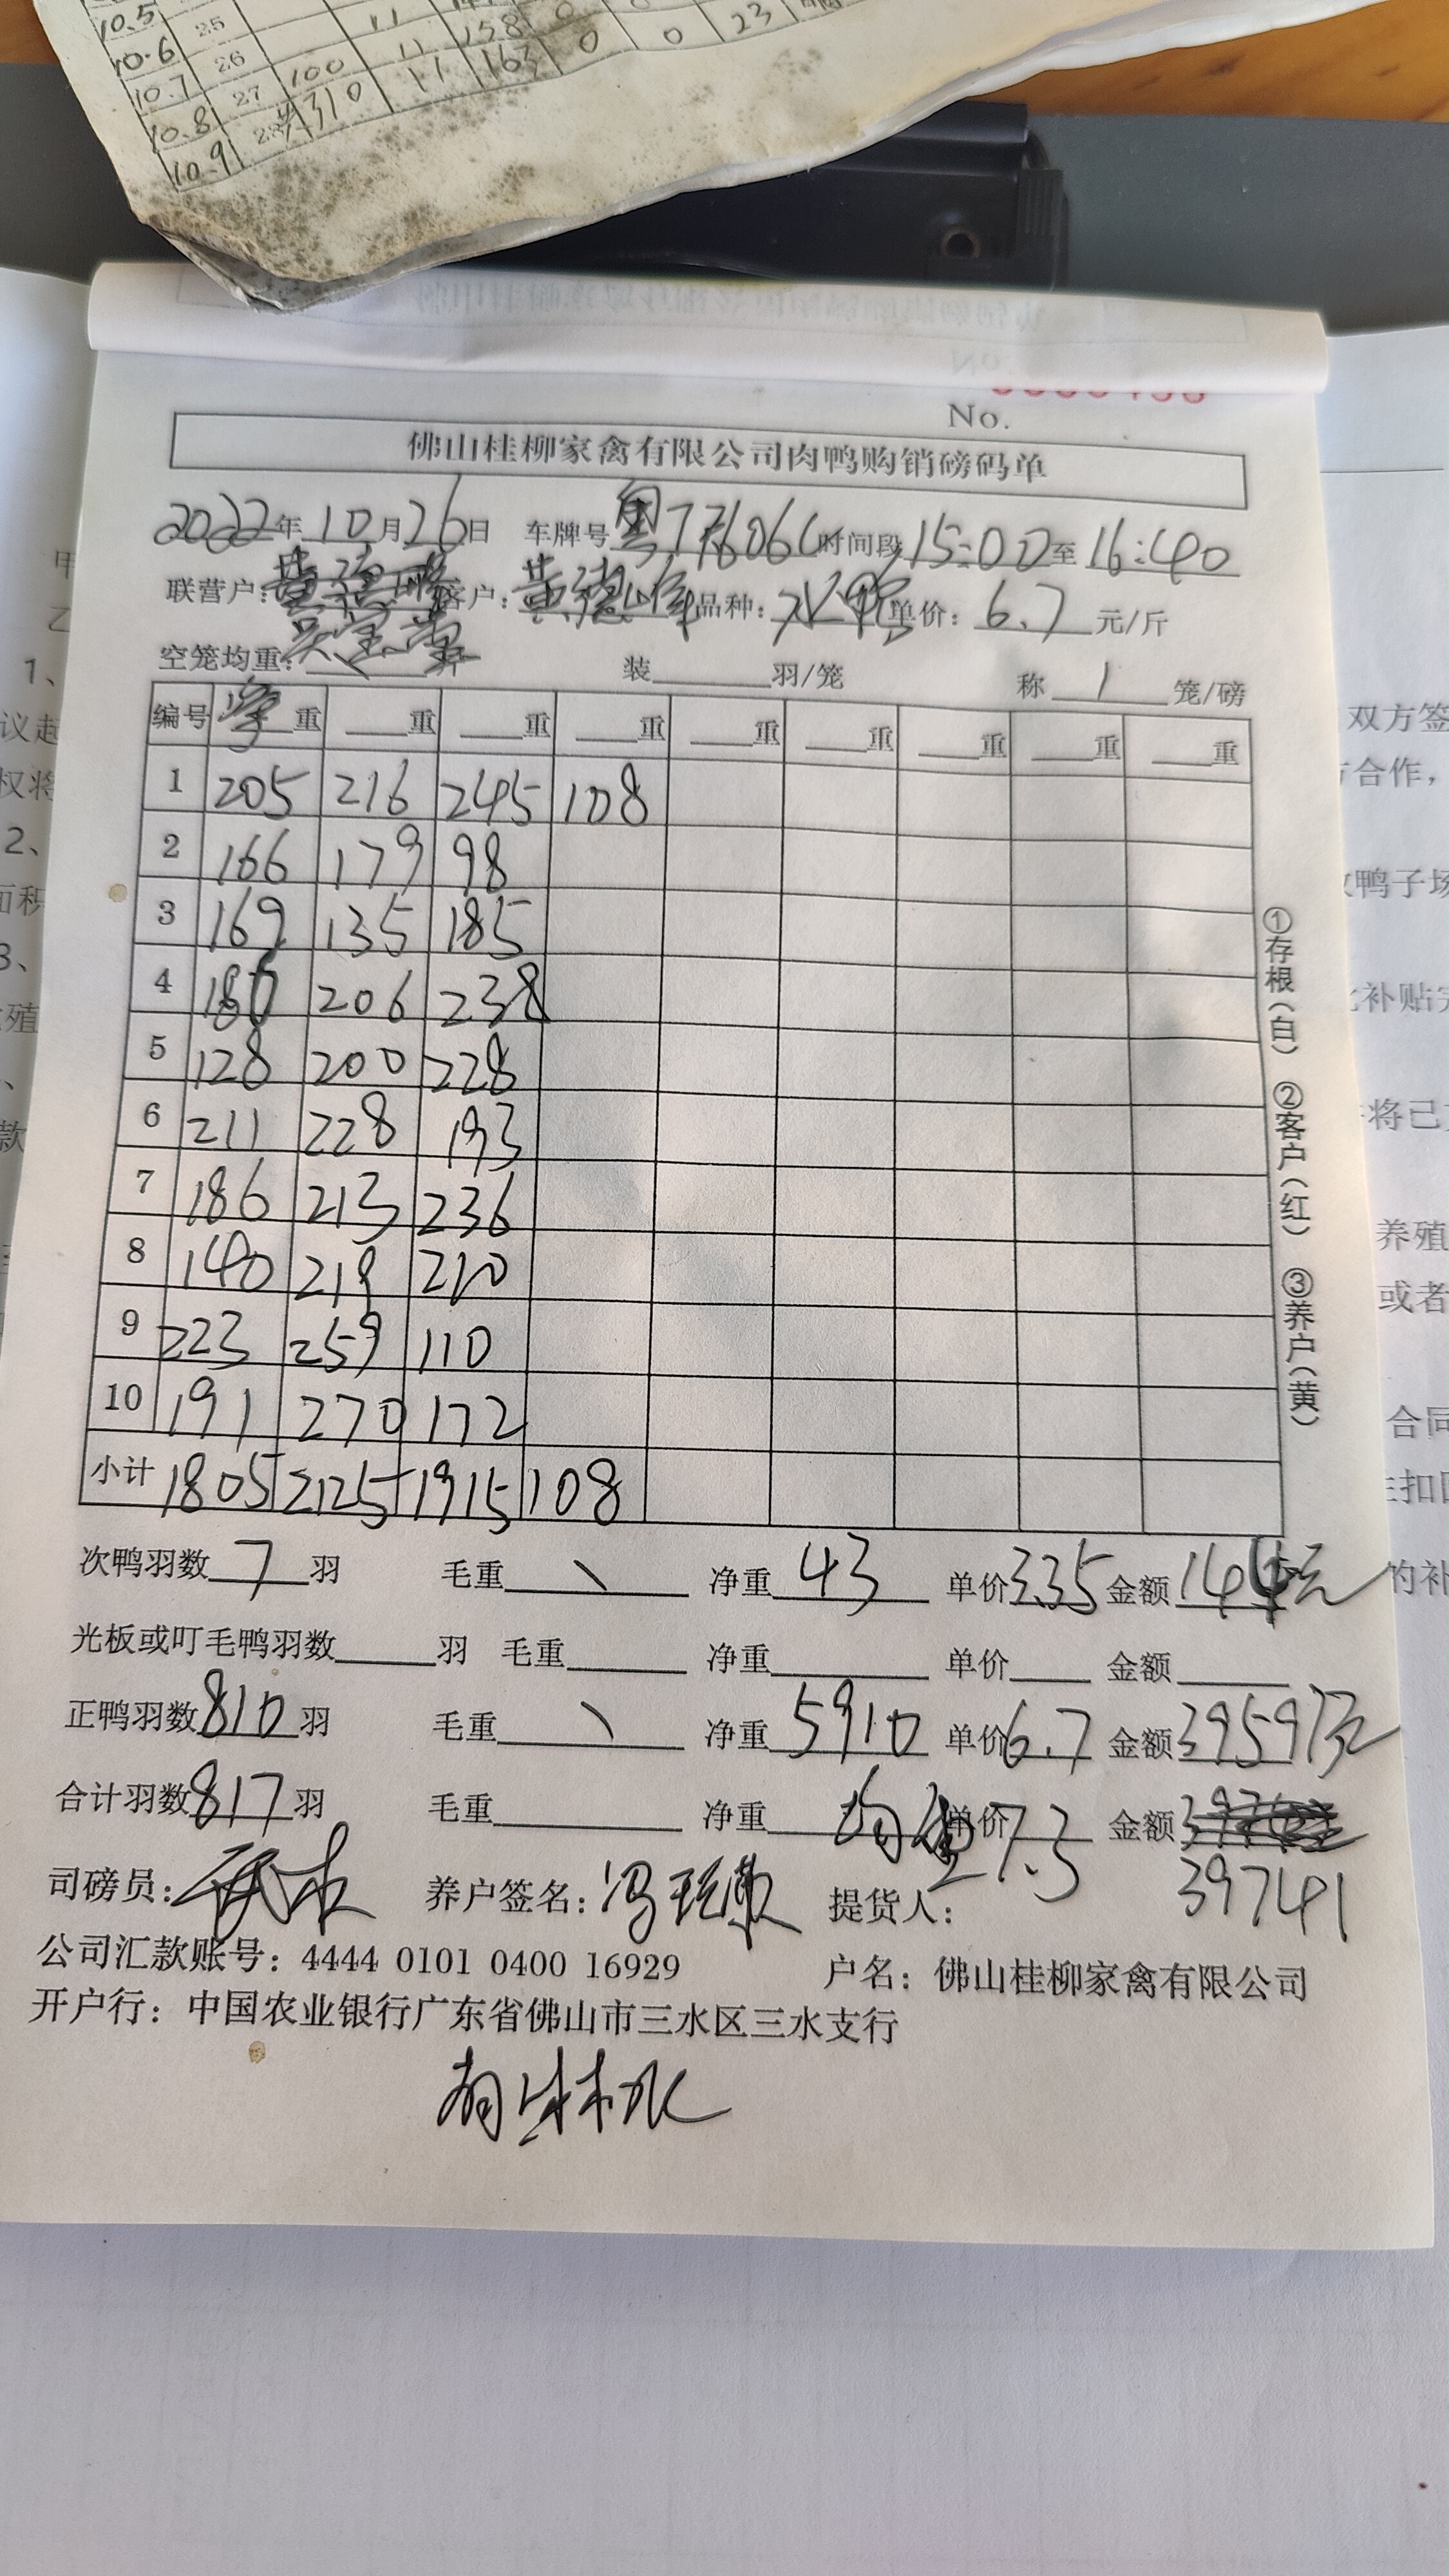 10.5 25 11
10.6 26 11 158 0
10.7 27 100 11 163 0 0 23
10.8 28 310
10.9
No.
佛山桂柳家禽有限公司肉鸭购销磅码单
2022年10月26日 车牌号粤T76066时间段15:00至16:40
联营户: 客户:黄德峰品种:水鸭单价:6.7元/斤
空笼均重: 斤 装 羽/笼 称 1 笼/磅
编号 重 重 重 重 重 重 重 重 重
1 205 216 245 108
2 166 179 98
3 169 135 185
4 186 206 238
5 128 200 228
6 211 228 193
7 186 213 236
8 140 219 210
9 223 259 110
10 191 270 172
小计 1805 2125 1915 108
次鸭羽数7羽 毛重 \ 净重 43 单价3.35 金额144元
光板或叮毛鸭羽数 羽 毛重 净重 单价 金额
正鸭羽数810羽 毛重 \ 净重5910 单价6.7 金额39597元
合计羽数817羽 毛重 净重 均重单价7.3 金额
39741
司磅员: 养户签名: 提货人:
公司汇款账号:4444 0101 0400 16929 户名:佛山桂柳家禽有限公司
开户行:中国农业银行广东省佛山市三水区三水支行
①存根(白) ②客户(红) ③养户(黄)
双方签
合作,
鸭子场
补贴完
将已
养殖
或者
合同
扣
的补